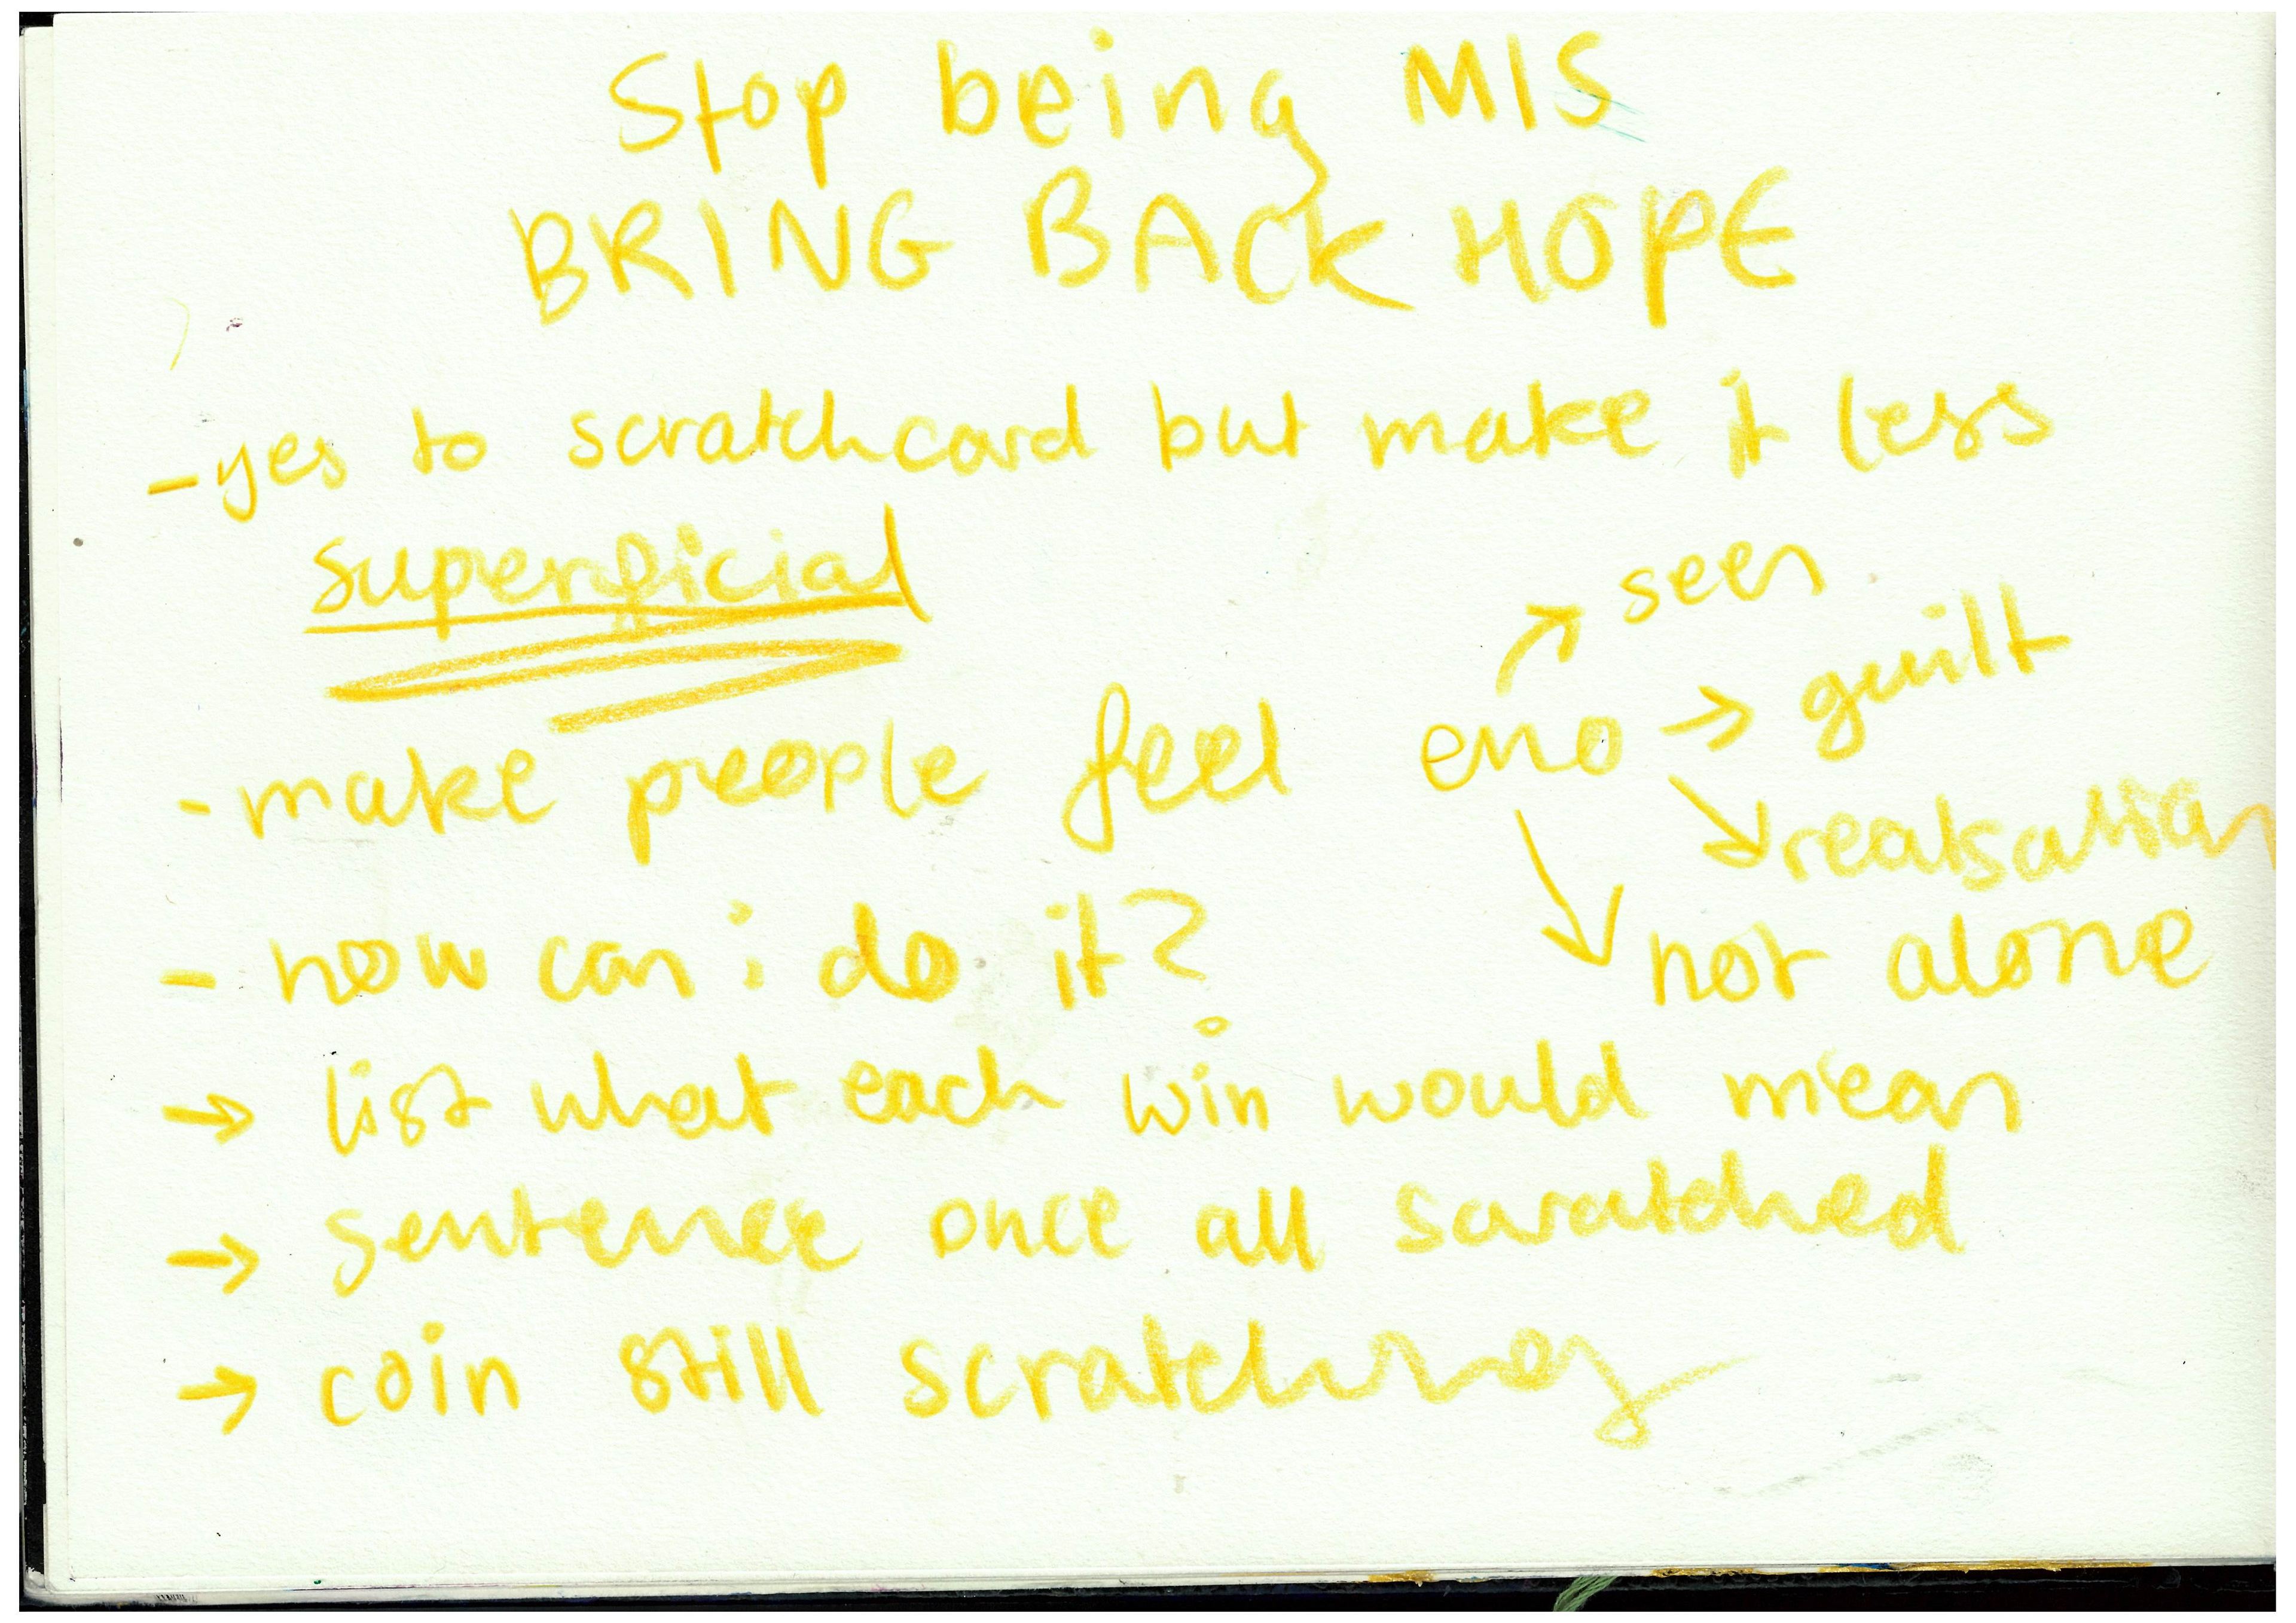 Stop being MIS
BRING BACK HOPE
- yes to scratchcard but make it less
superficial
- make people feel emo → seen
→ guilt
→ realisation
→ not alone
- how can i do it?
→ list what each win would mean
→ sentence once all scratched
→ coin still scratching